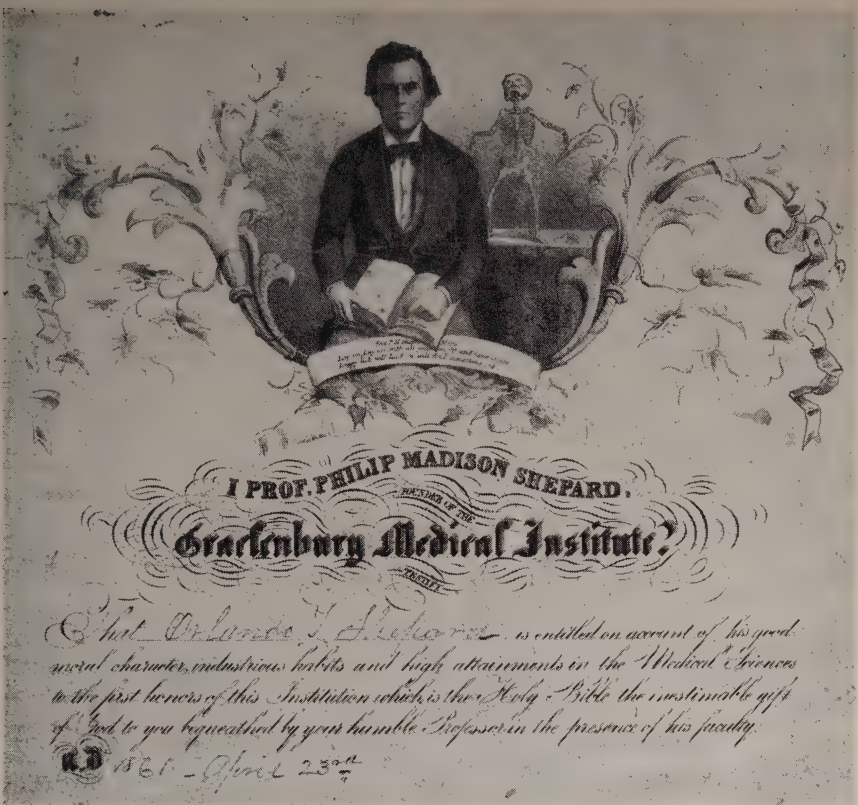 I PROF. PHILIP MADISON SHEPARD,
FOUNDER OF THE
Graefenburg Medical Institute.
TESTIFY
That Orlando T. Shepard is entitled on account of his good
moral character, industrious habits and high attainments in the Medical Sciences
to the first honors of this Institution which is the Holy Bible the inestimable gift
of God to you bequeathed by your humble Professor in the presence of his faculty.
A.D 1861 - April 23rd